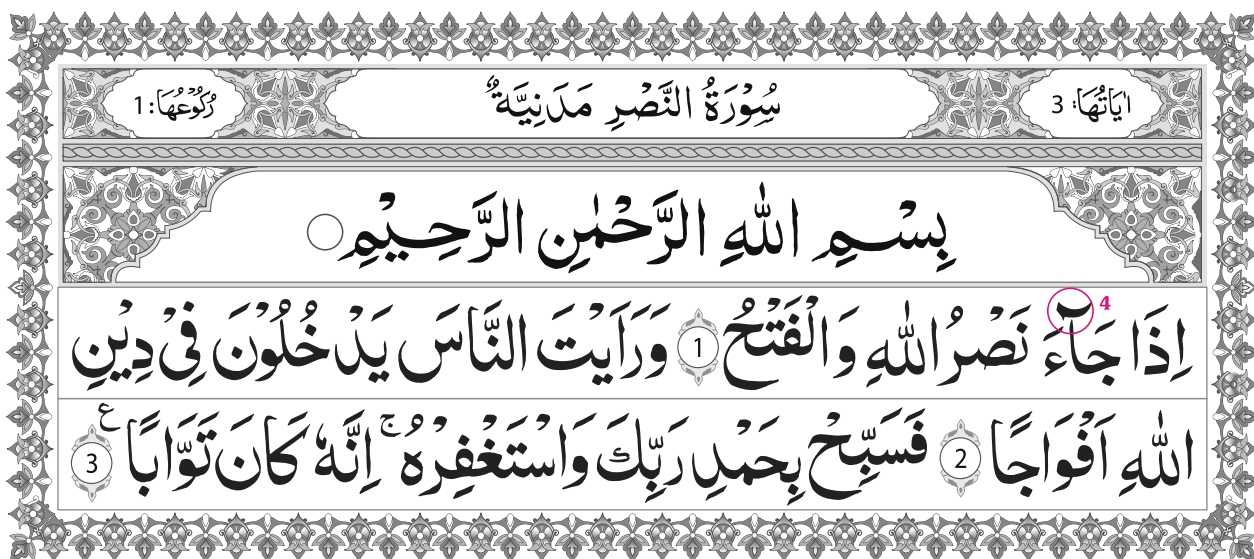 اٰيَاتُهَا: 3 سُوْرَةُ النَّصْرِ مَدَنِيَّةٌ رُكُوْعُهَا: 1
بِسْمِ اللّٰهِ الرَّحْمٰنِ الرَّحِيْمِ
اِذَا جَآءَ نَصْرُ اللّٰهِ وَالْفَتْحُ 1 وَرَاَيْتَ النَّاسَ يَدْخُلُوْنَ فِىْ دِيْنِ 4
اللّٰهِ اَفْوَاجًا 2 فَسَبِّحْ بِحَمْدِ رَبِّكَ وَاسْتَغْفِرْهُ ۚ اِنَّهٗ كَانَ تَوَّابًا 3 ع